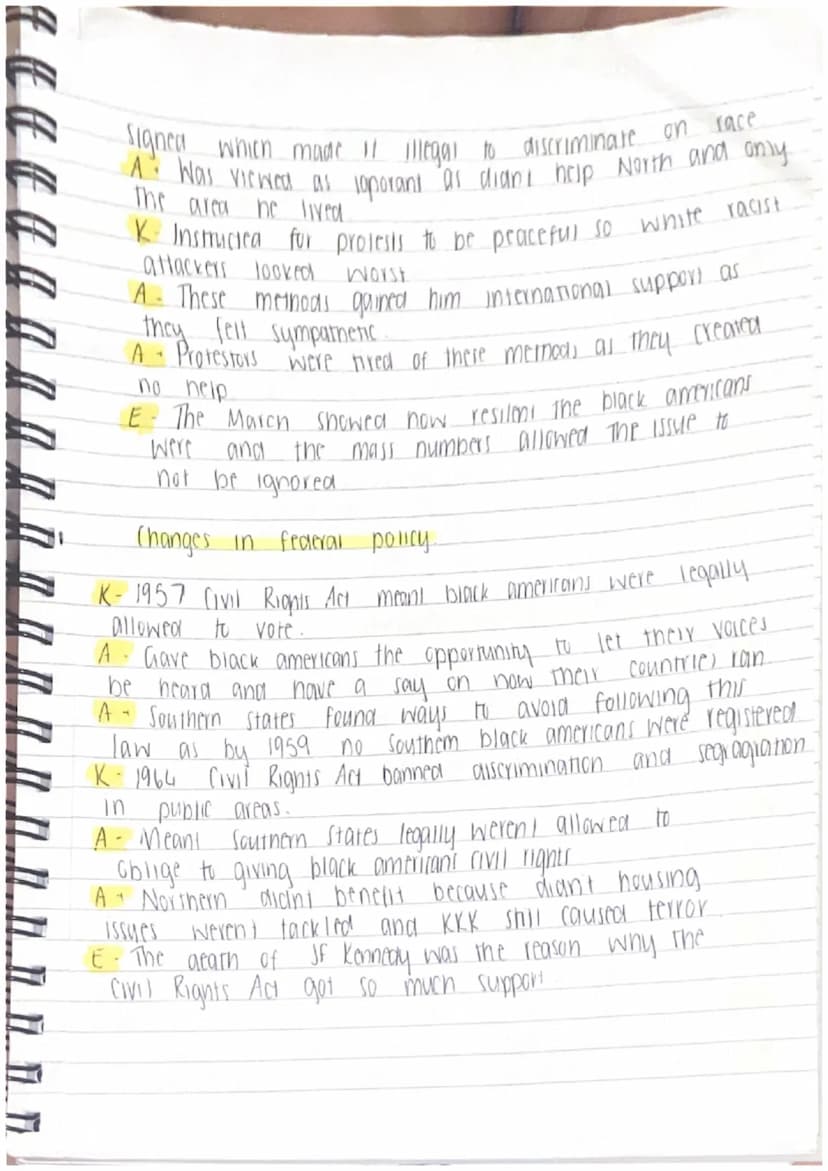 signed which made it illegal to discriminate on race
A - Was viewed as ignorant as didnt help North and only
the area he lived
K - Instructed for protests to be peaceful so white racist
attackers looked worst
A - These methods gained him international support as
they felt sympathetic.
A - Protestors were tired of these methods as they created
no help
E - The March showed how resilent the black americans
were and the mass numbers allowed the issue to
not be ignored
Changes in federal policy.
K - 1957 Civil Rights Act meant black americans were legally
allowed to vote.
A - Gave black americans the opportunity to let their voices
be heard and have a say on how their countries ran
A - Southern states found ways to avoid following this
law as by 1959 no Southern black americans were registered
K - 1964 Civil Rights Act banned discrimination and segragiation
in public areas.
A - Meant Southern States legally werent allowed to
oblige to giving black americans civil rights
A - Northern didnt benefit because didnt housing
issues werent tackled and KKK still caused terror
E - The death of JF Kennedy was the reason why the
Civil Rights Act got so much support